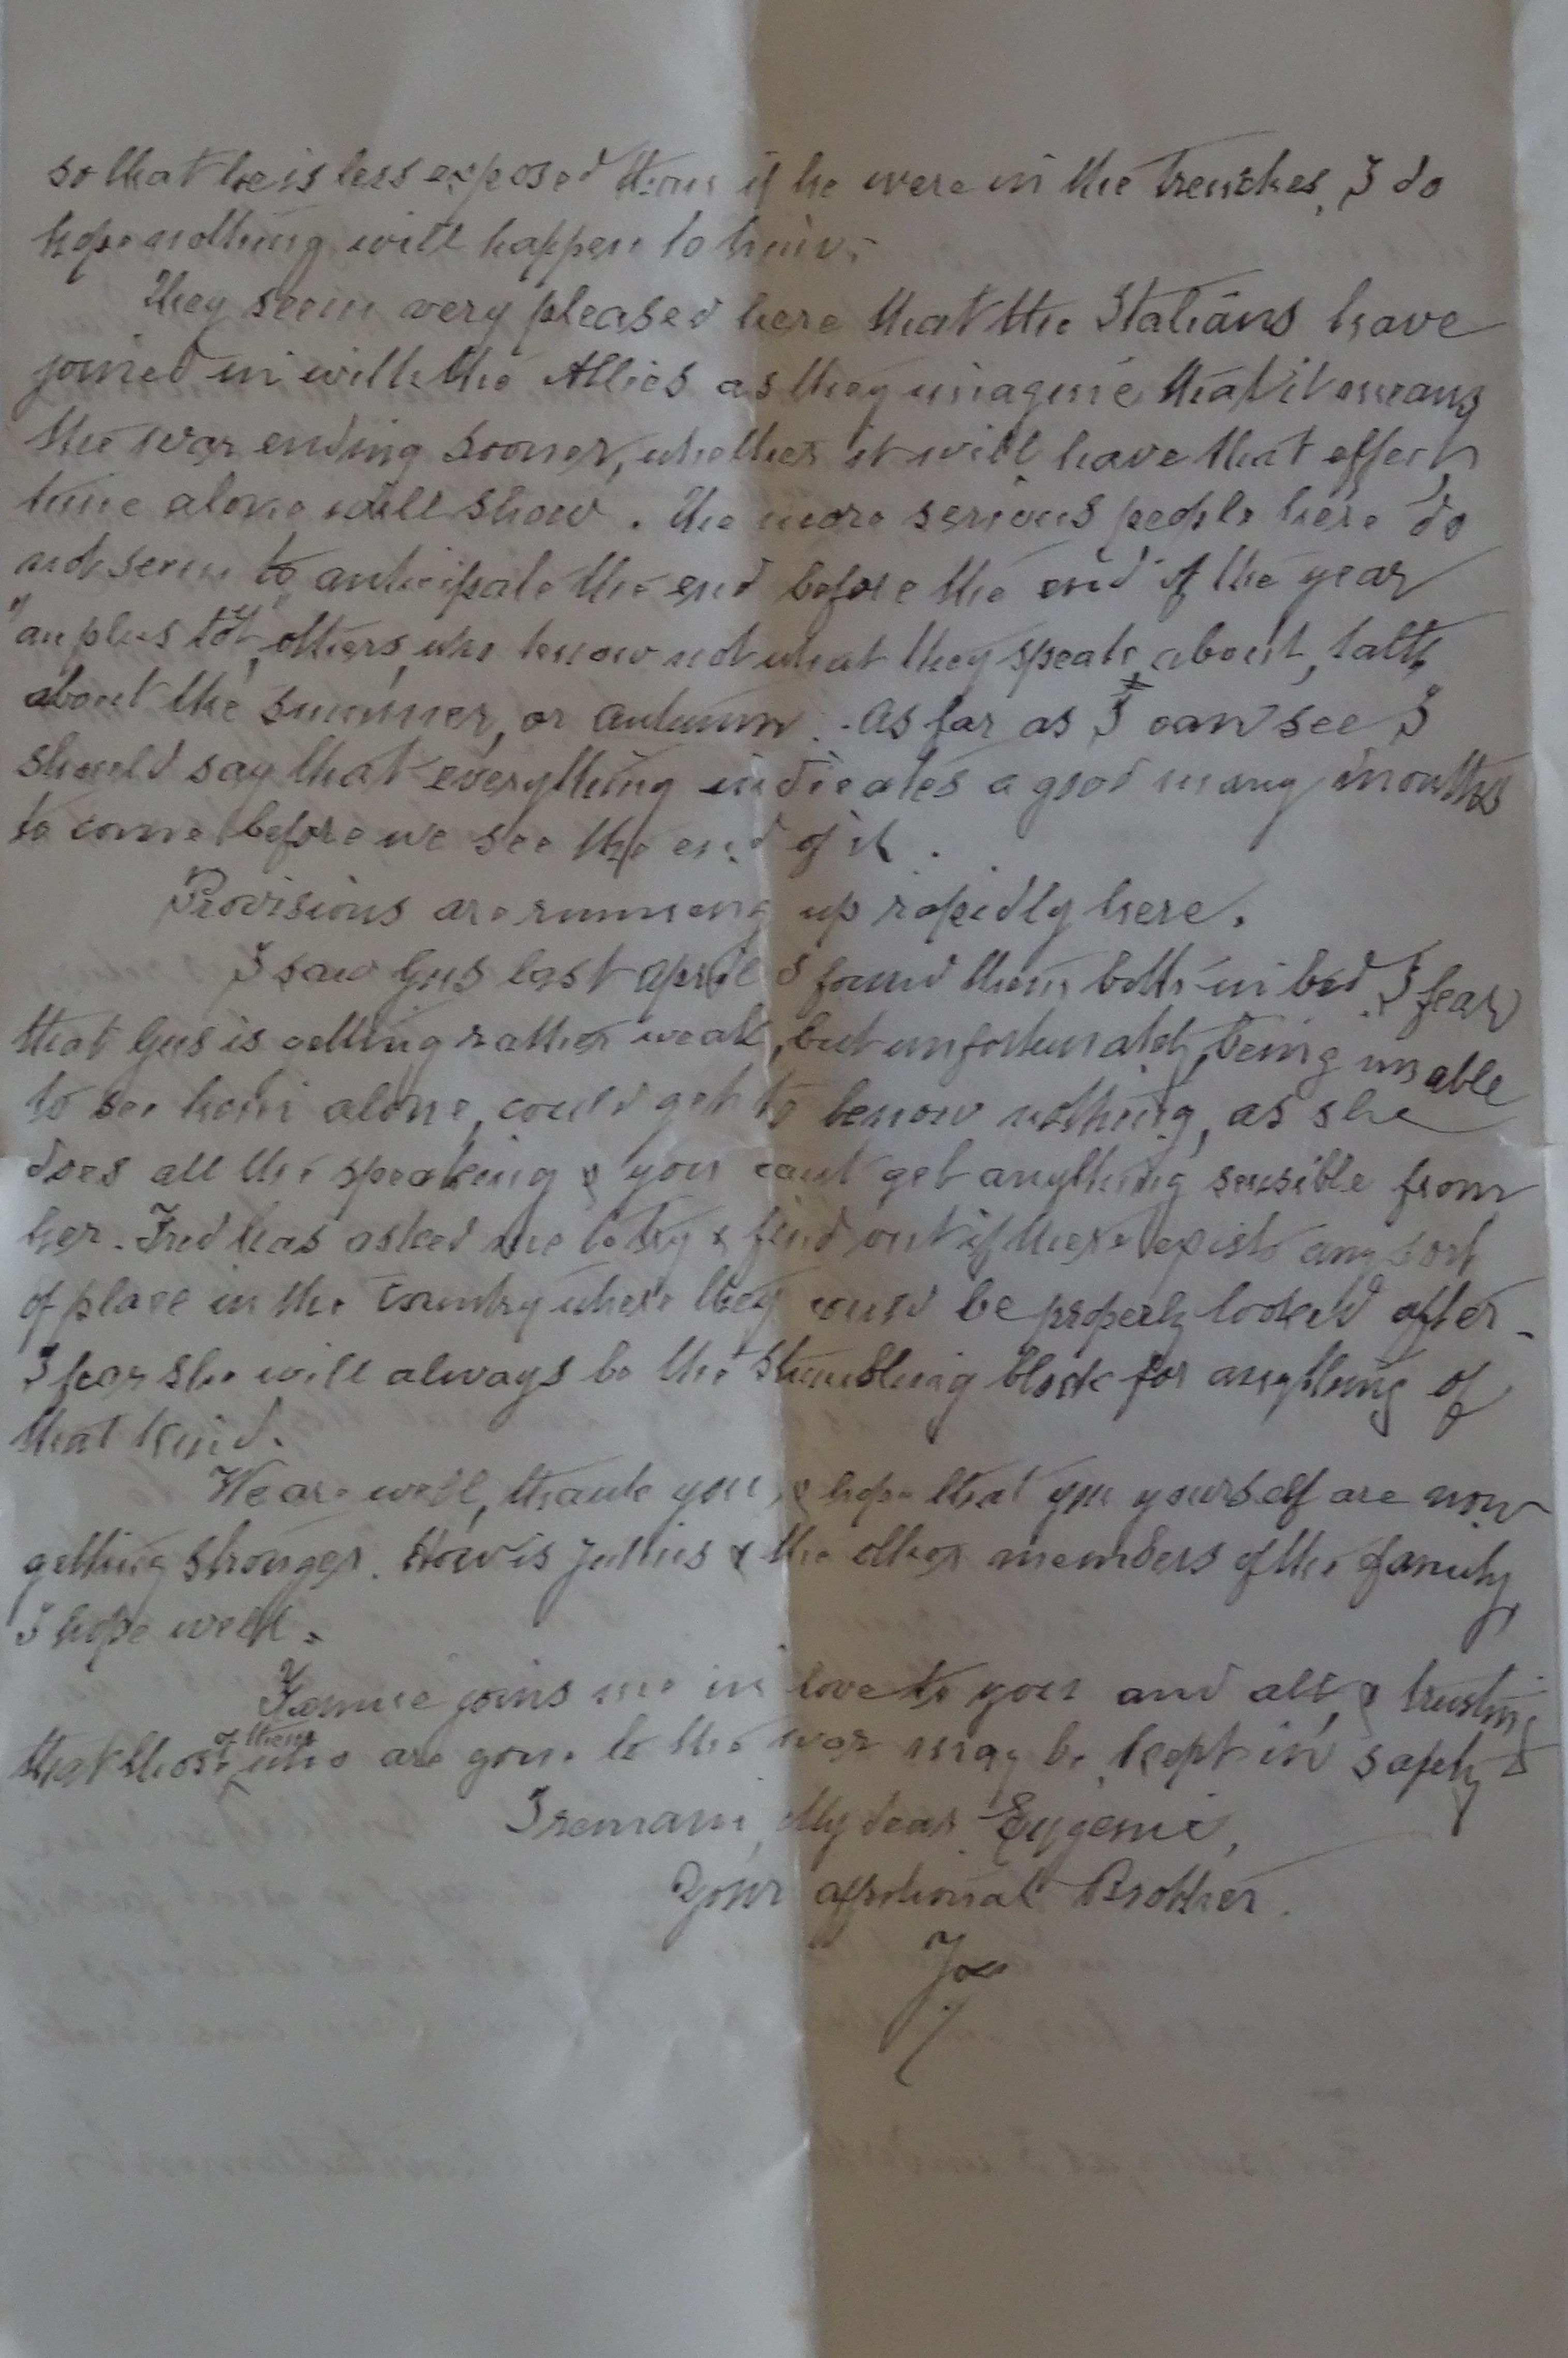 so that he is less exposed than if he were in the trenches, I do
hope nothing will happen to him.
They seem very pleased here that the Italians have
joined in with the Allies as they imagine that it means
the war ending sooner, whether it will have that effect,
time alone will show. The more serious people here do
not seem to anticipate the end before the end of the year
"au plus tôt", others, who know not what they speak about, talk
about the summer, or autumn. As far as I can see I
should say that everything indicates a good many months
to come before we see the end of it.
Provisions are running up rapidly here.
I saw Gus last April & found them both in bed. I fear
that Gus is getting rather weak, but unfortunately, being unable
to see him alone, could get to know nothing, as she
does all the speaking & you cant get anything sensible from
her. Fred has asked me to try & find out if there exists any sort
of place in the country where they could be properly looked after -
I fear she will always be the stumbling block for anything of
that kind.
We are well, thank you, & hope that you yourself are now
getting stronger. How is Julius & the other members of the family,
I hope well.
Fannie joins me in love to you and all, & trusting
that those of them who are gone to the war may be kept in safety &
I remain, My dear Eugenie,
Your Brother.
Joe